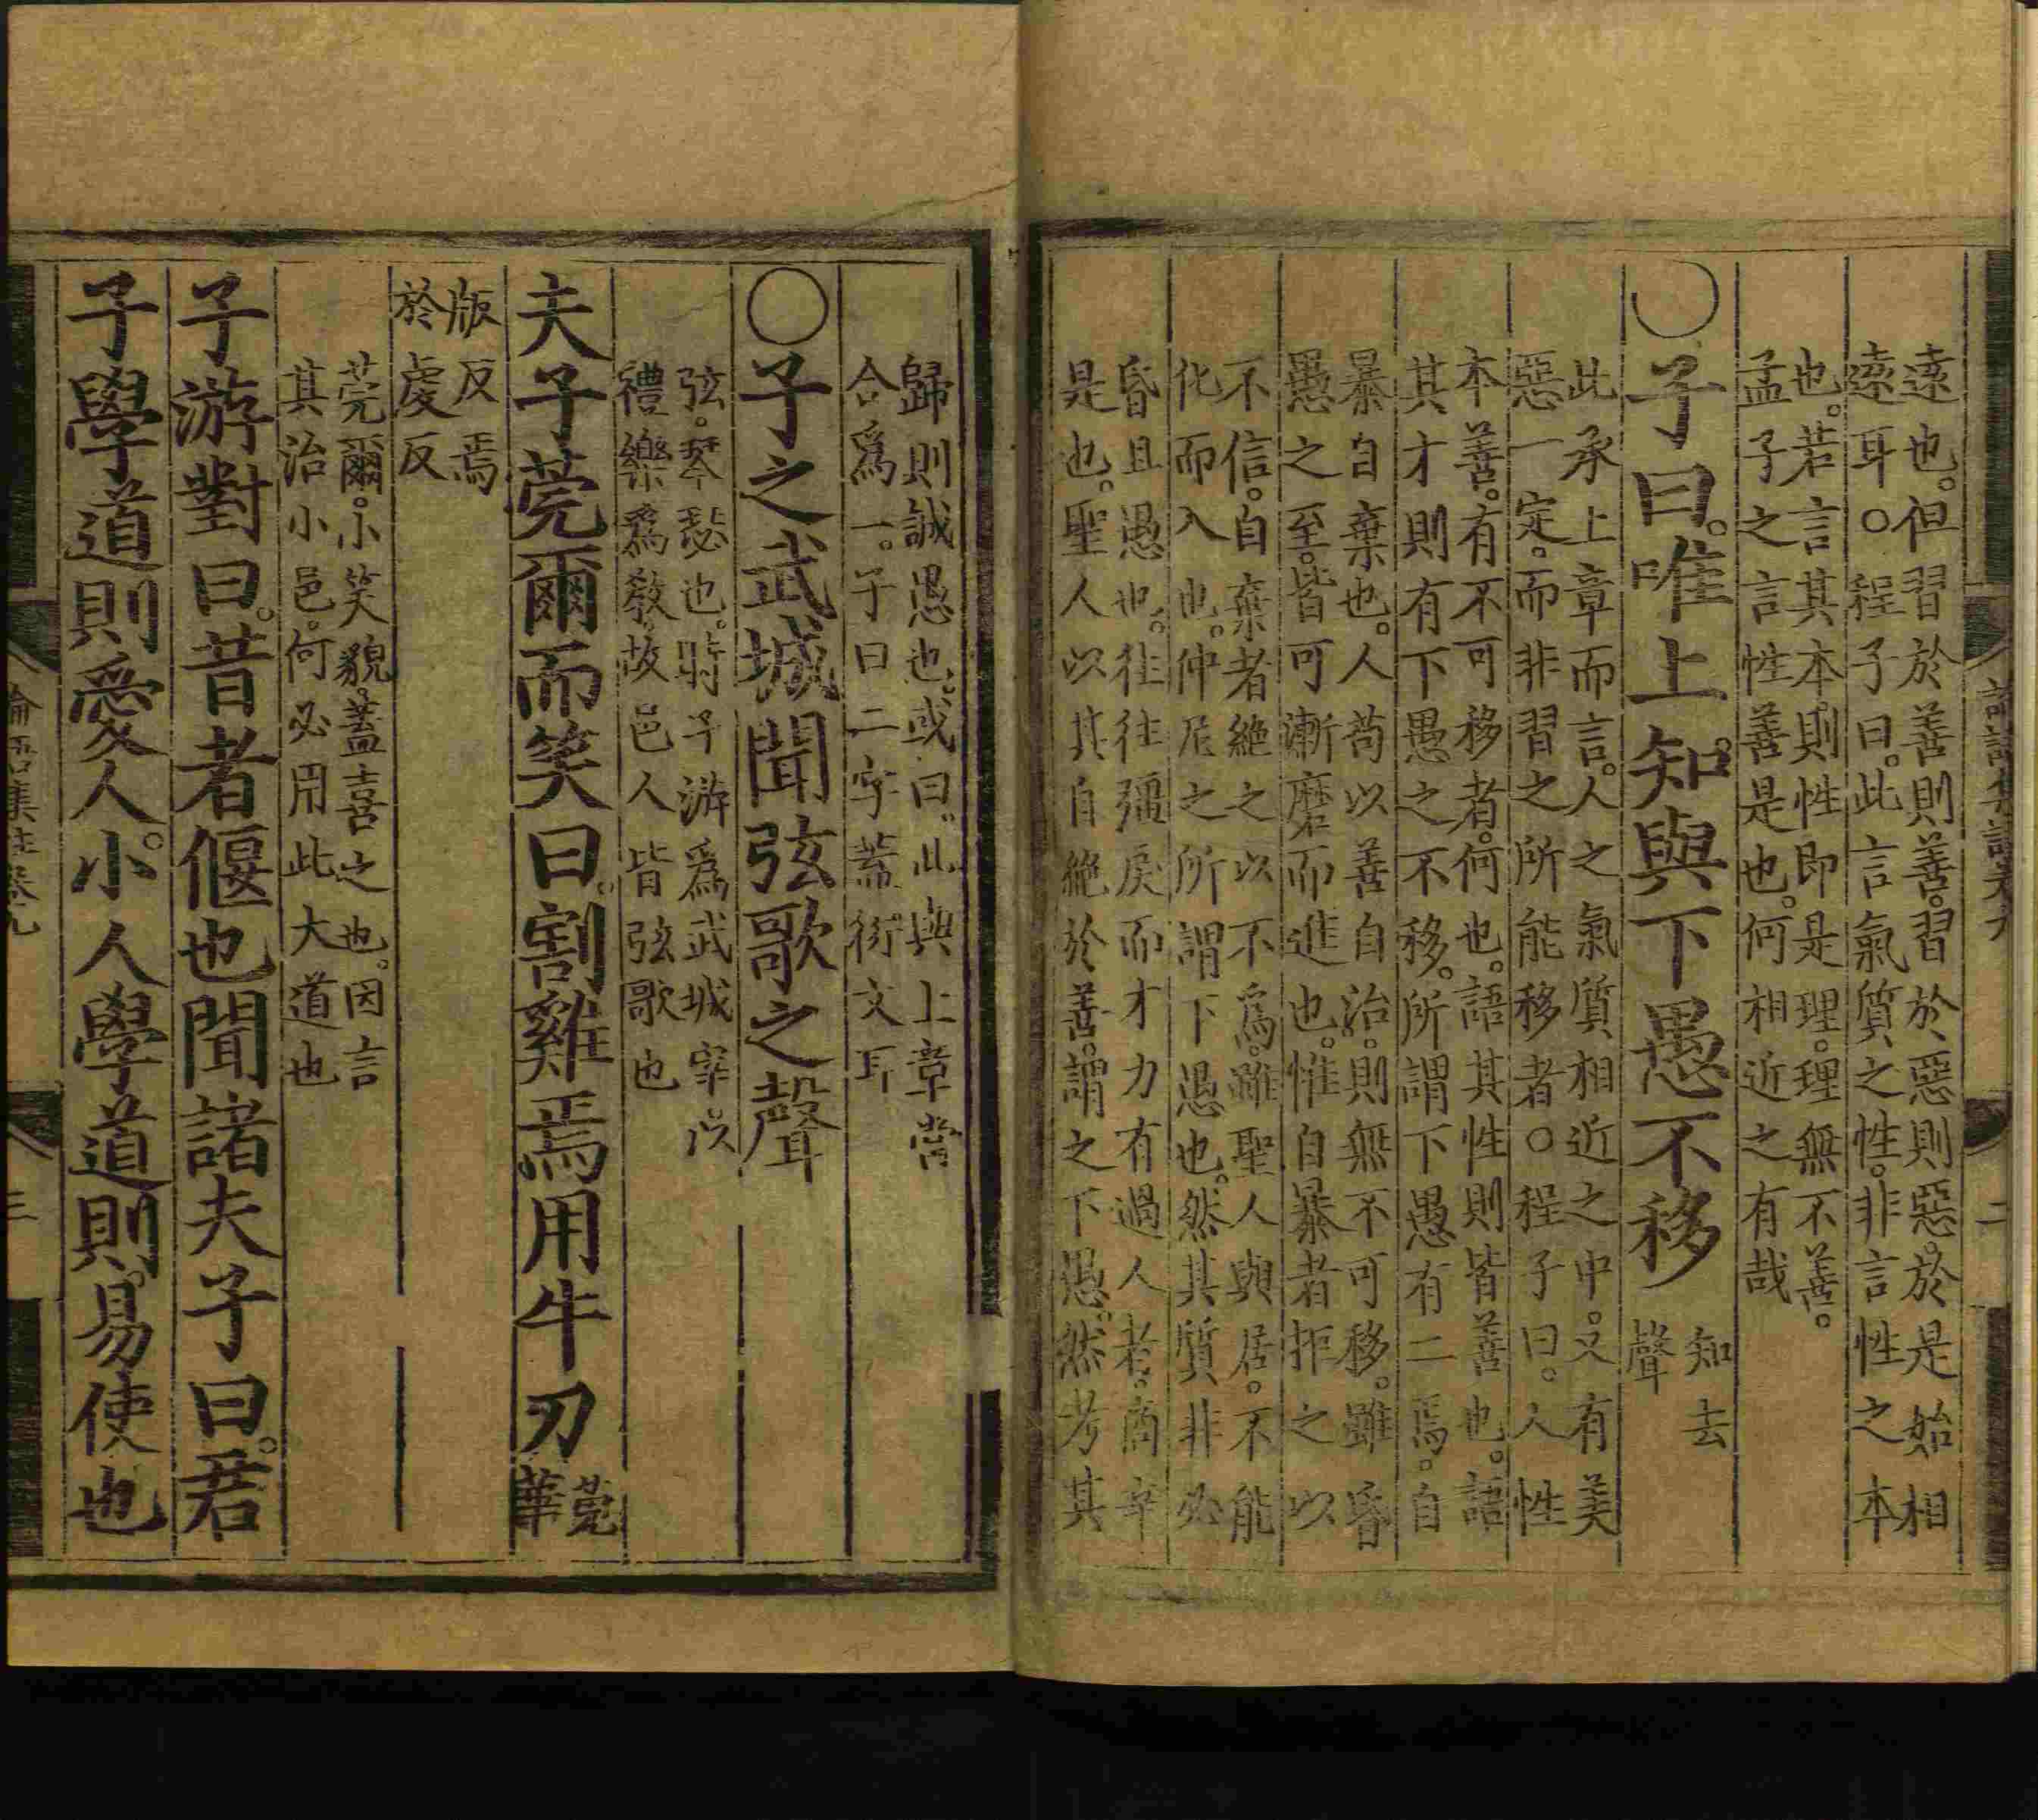 遠也。但習於善則善。習於惡則惡。於是始相
遠耳。○程子曰。此言氣質之性。非言性之本
也。若言其本。則性即是理。理無不善。
孟子之言性善是也。何相近之有哉
○子曰。唯上知與下愚不移
知去
聲
此承上章而言。人之氣質相近之中。又有美
惡一定。而非習之所能移者。○程子曰。人性
本善。有不可移者。何也。語其性則皆善也。語
其才則有下愚之不移。所謂下愚有二焉。自
暴自棄也。人苟以善自治。則無不可移。雖昏
愚之至。皆可漸磨而進也。惟自暴者拒之以
不信。自棄者絶之以不爲。雖聖人與居。不能
化而入也。仲尼之所謂下愚也。然其質非必
昏且愚也。往往彊戾而才力有過人者。商辛
是也。聖人以其自絶於善。謂之下愚。然考其
二
歸則誠愚也。或曰。此與上章當
合爲一。子曰二字蓋衍文耳
○子之武城聞弦歌之聲
弦。琴瑟也。時子游爲武城宰。以
禮樂爲教。故邑人皆弦歌也
夫子莞爾而笑曰。割雞焉用牛刀
莞
華
版反焉
於虔反
莞爾。小笑貌。蓋喜之也。因言
其治小邑。何必用此大道也
子游對曰。昔者偃也聞諸夫子曰。君
子學道則愛人。小人學道則易使也
論語集註卷九
三